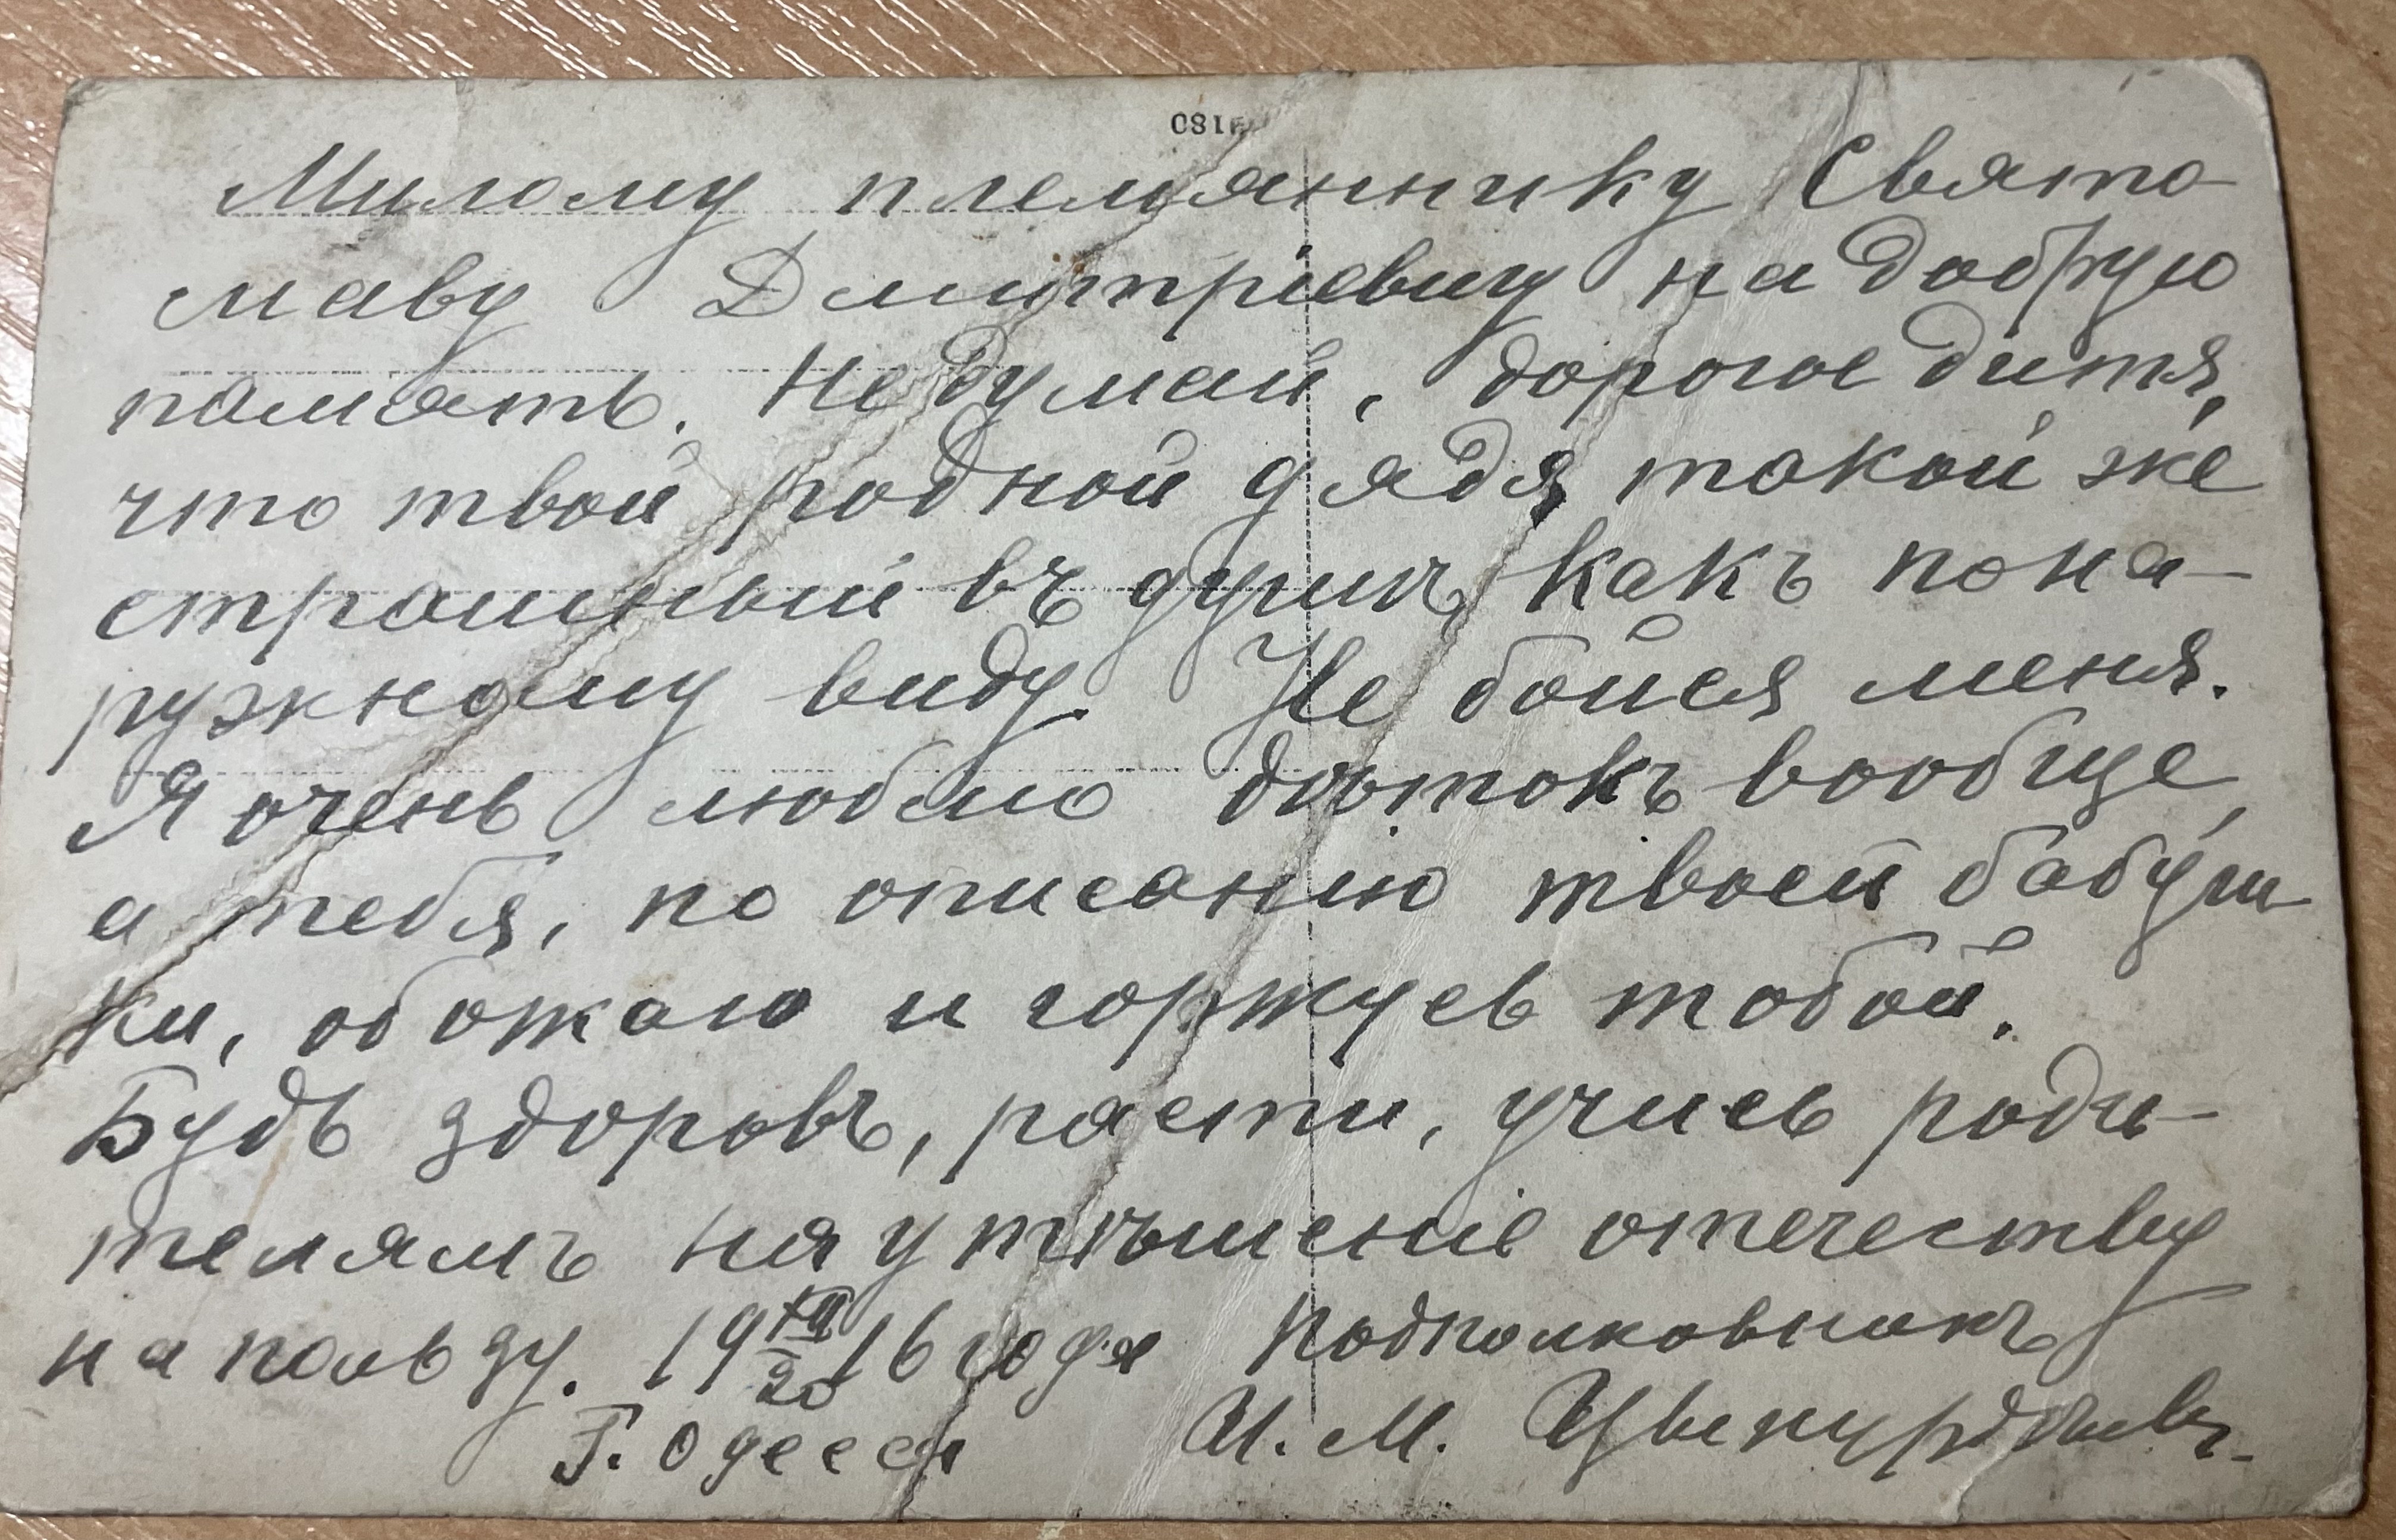 0811
Милому племяннику Свято-
славу Дмитріевичу на добрую
память. Не думай, дорогое дитя,
что твой родной дядя такой же
страшный въ душѣ, какъ пона-
ружному виду. Не бойся меня.
Я очень люблю дѣтокъ вообще,
а тебя, по описанію твоей бабуш-
ки, обожаю и горжусь тобой.
Будь здоровъ, расти, учись роди-
телямъ на утѣшеніе отечеству
на пользу. 19 20 16 года Подполковникъ
Г. Одесса И. М.